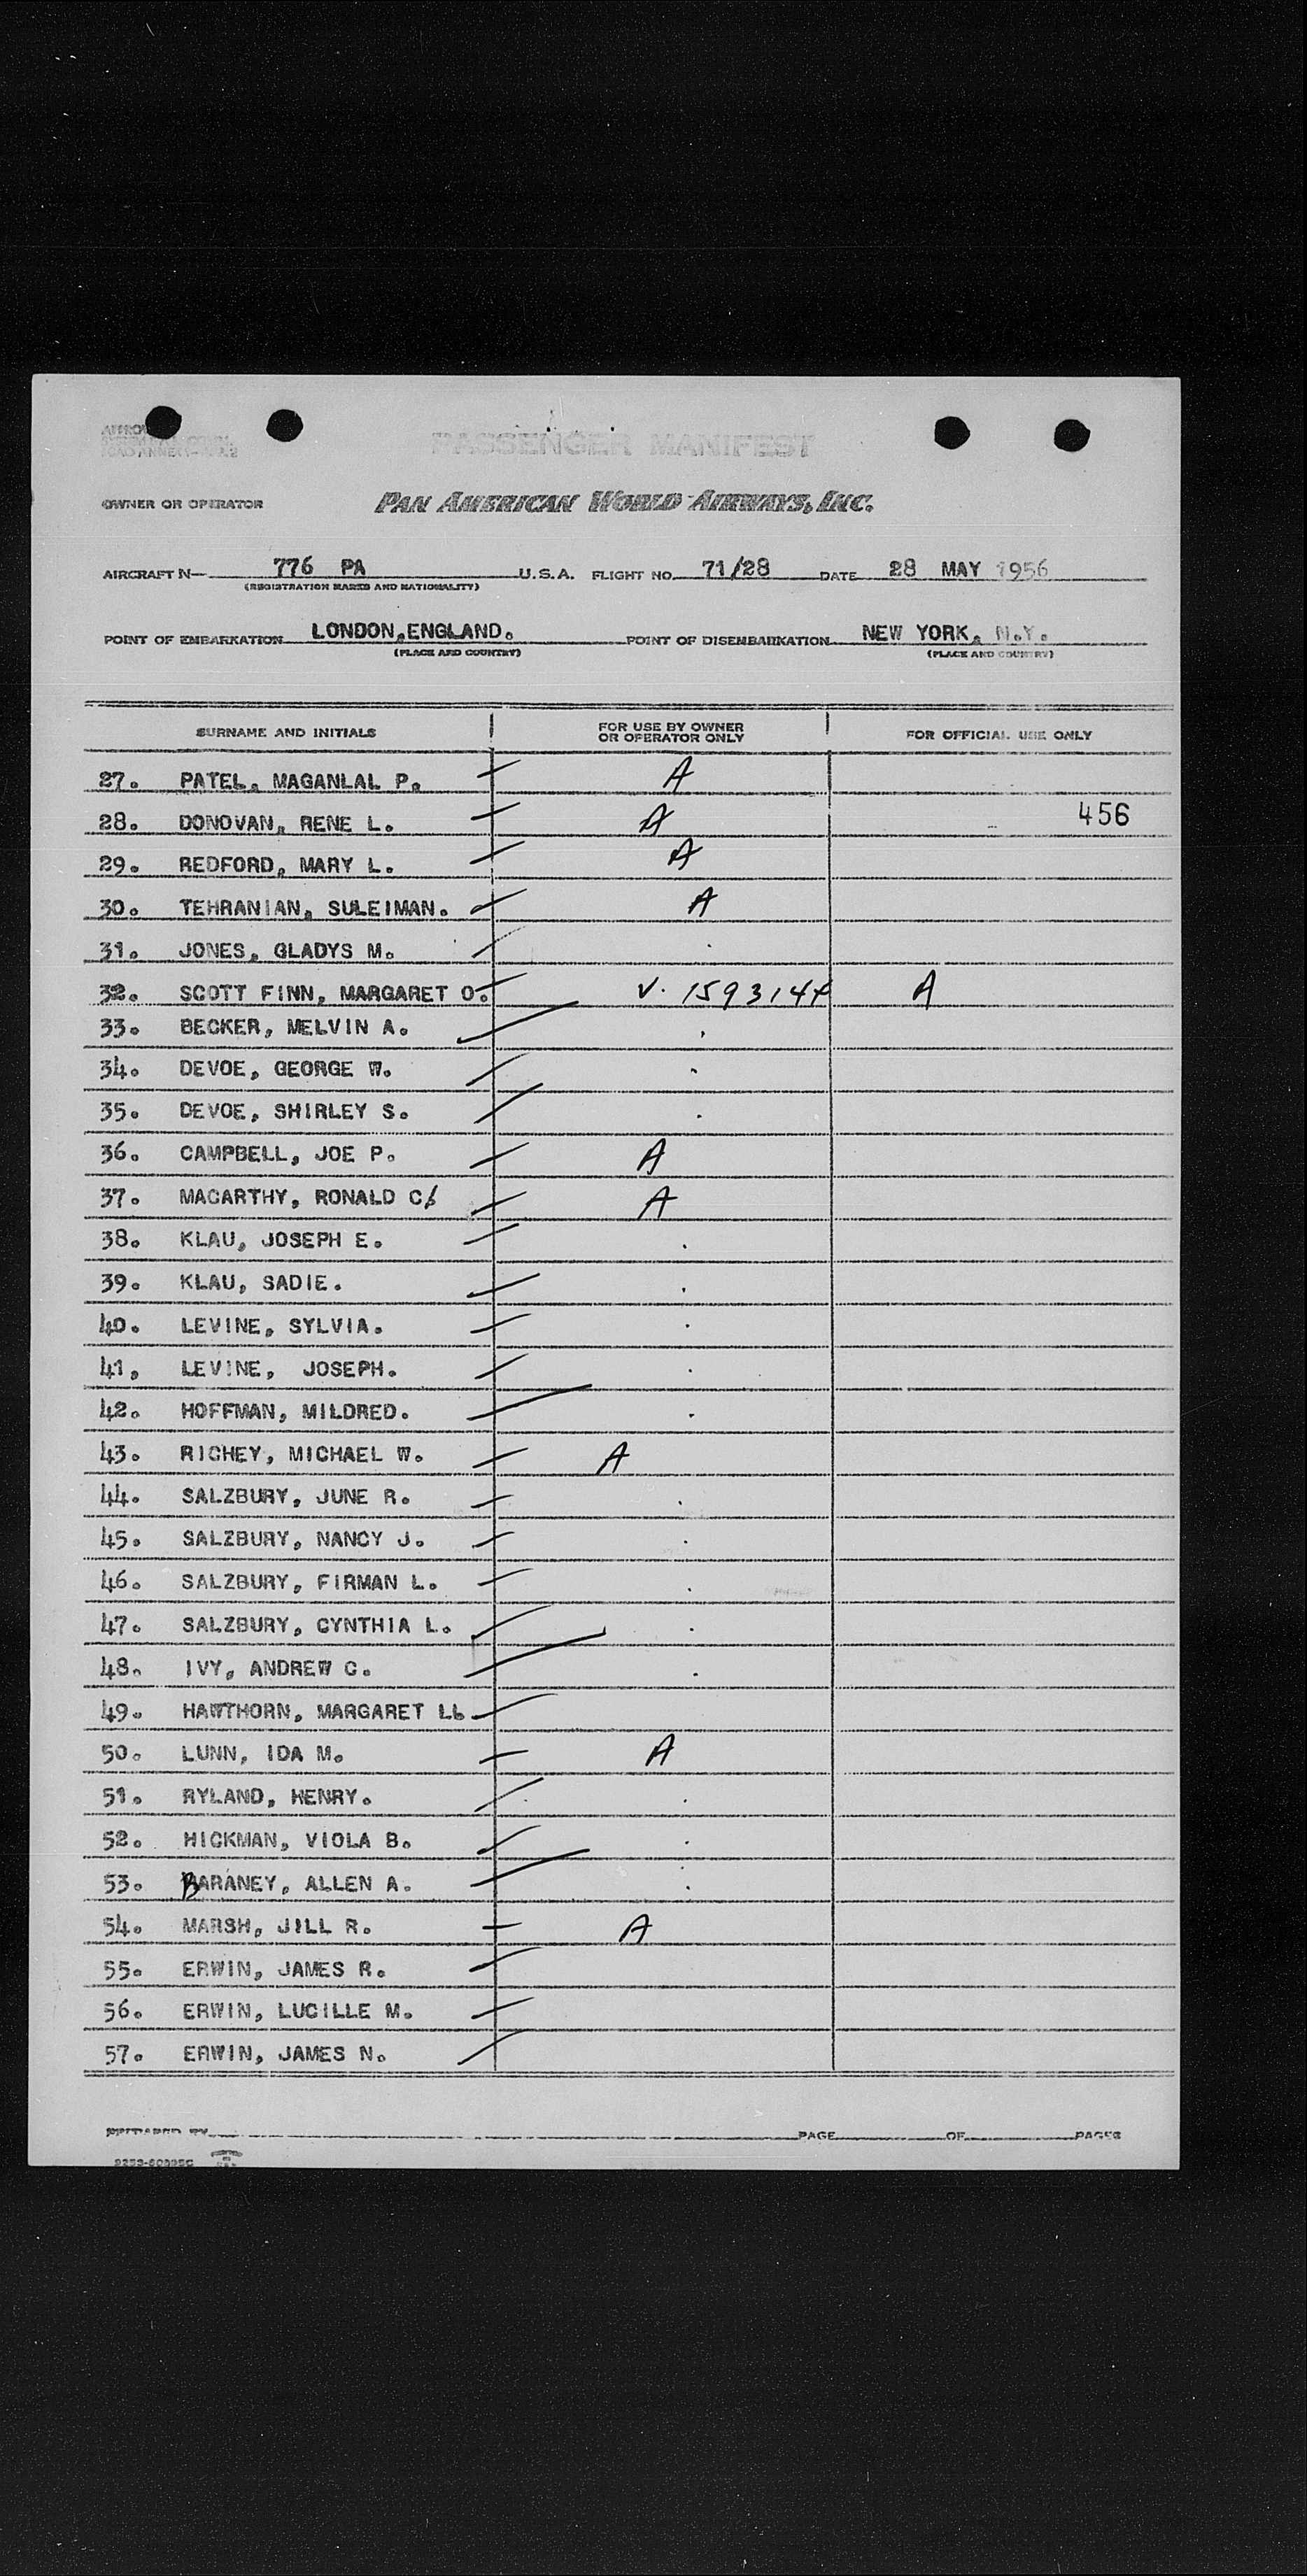 PASSENGER MANIFEST
OWNER OR OPERATOR PAN AMERICAN WORLD AIRWAYS, INC.
AIRCRAFT N— 776 PA U.S.A. FLIGHT NO. 71/28 DATE 28 MAY 1956
(REGISTRATION MARKS AND NATIONALITY)
POINT OF EMBARKATION LONDON,ENGLAND. POINT OF DISEMBARKATION NEW YORK, N.Y.
(PLACE AND COUNTRY) (PLACE AND COUNTRY)
SURNAME AND INITIALS FOR USE BY OWNER OR OPERATOR ONLY FOR OFFICIAL USE ONLY
27. PATEL, MAGANLAL P. A
28. DONOVAN, RENE L. A 456
29. REDFORD, MARY L. A
30. TEHRANIAN, SULEIMAN. A
31. JONES, GLADYS M.
32. SCOTT FINN, MARGARET O. V. 1593144 A
33. BECKER, MELVIN A.
34. DEVOE, GEORGE W.
35. DEVOE, SHIRLEY S.
36. CAMPBELL, JOE P. A
37. MACARTHY, RONALD C. A
38. KLAU, JOSEPH E.
39. KLAU, SADIE.
40. LEVINE, SYLVIA.
41, LEVINE, JOSEPH.
42. HOFFMAN, MILDRED.
43. RICHEY, MICHAEL W. A
44. SALZBURY, JUNE R.
45. SALZBURY, NANCY J.
46. SALZBURY, FIRMAN L.
47. SALZBURY, CYNTHIA L.
48. IVY, ANDREW C.
49. HAWTHORN, MARGARET LL
50. LUNN, IDA M. A
51. RYLAND, HENRY.
52. HICKMAN, VIOLA B.
53. BARANEY, ALLEN A.
54. MARSH, JILL R. A
55. ERWIN, JAMES R.
56. ERWIN, LUCILLE M.
57. ERWIN, JAMES N.
PREPARED BY PAGE OF PAGES